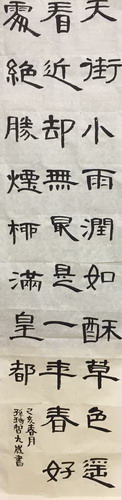 天街小雨潤如酥草色遥
看近却無最是一年春好
處絕勝煙柳滿皇都
己亥春月
孫智歲書